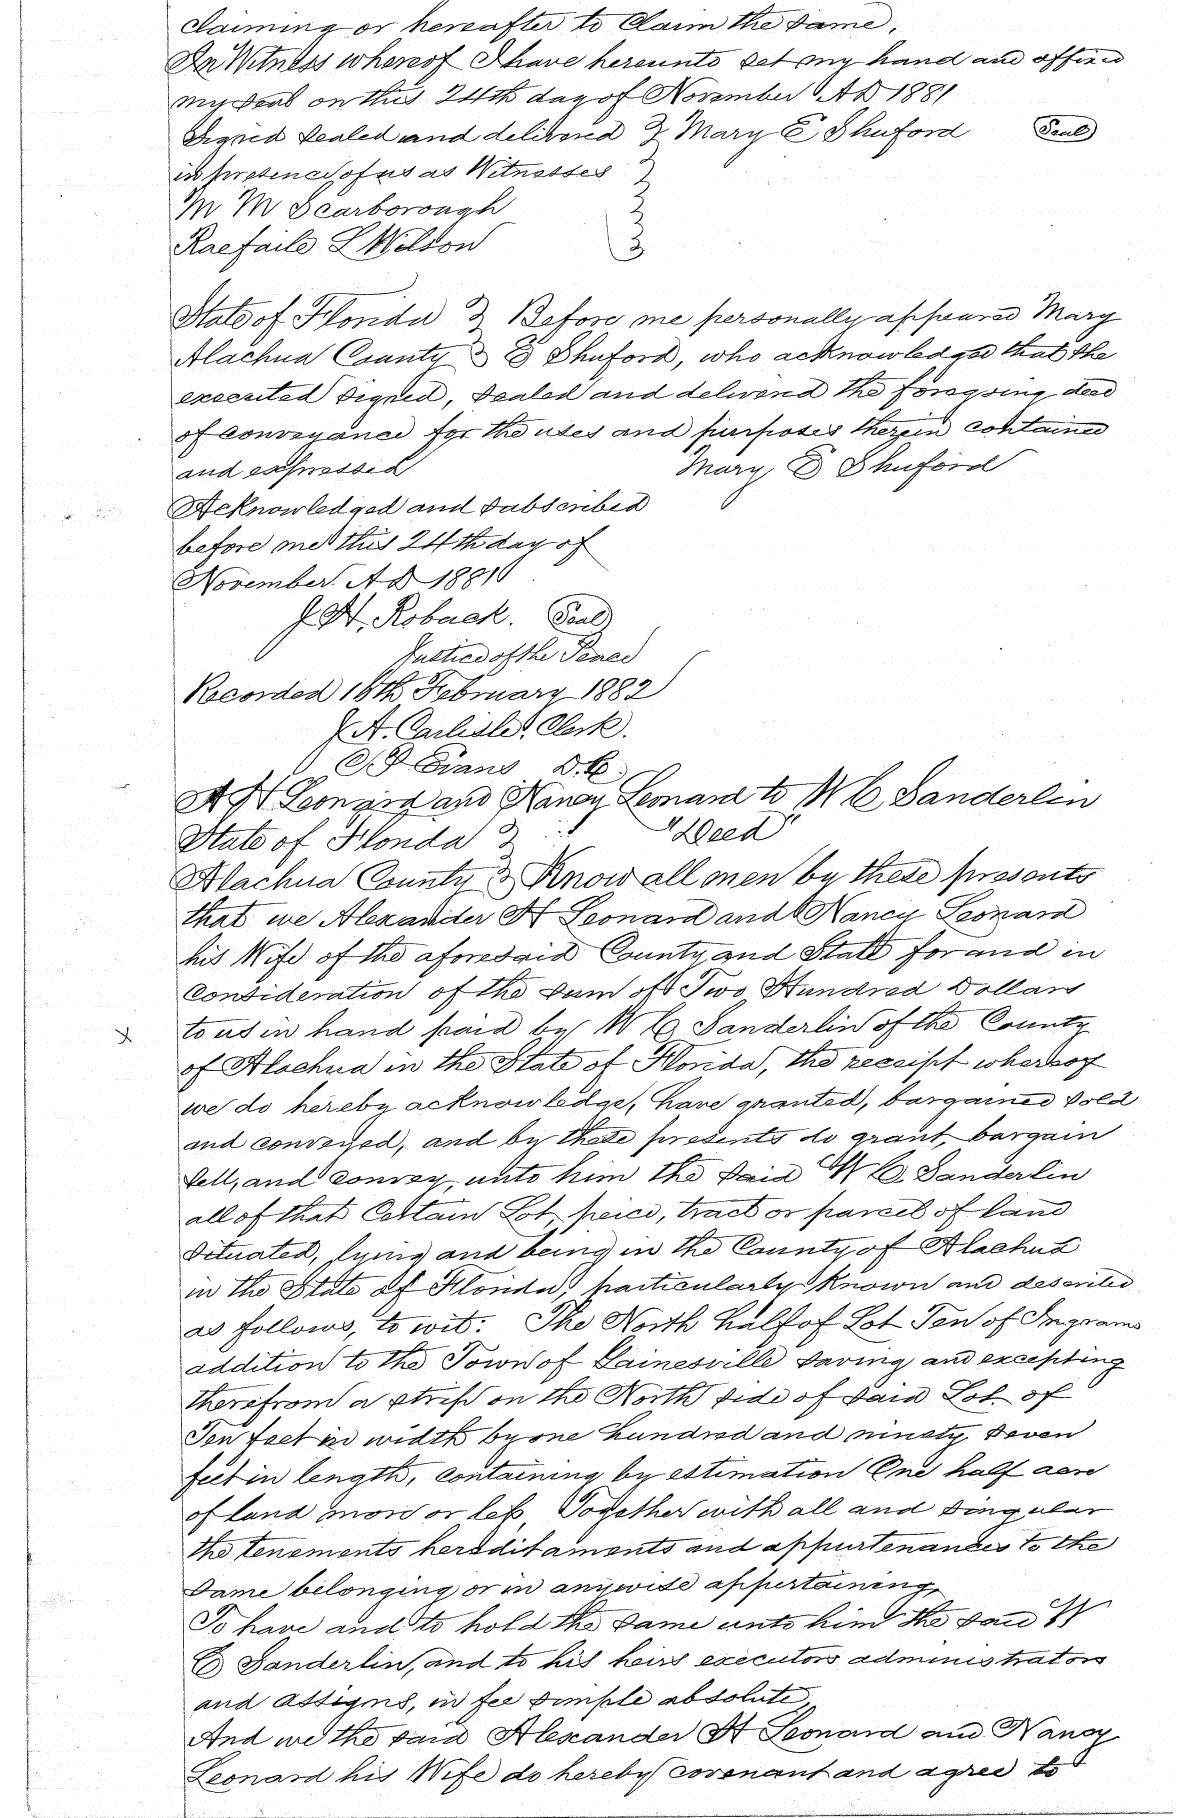 claiming or hereafter to Claim the same.
In Witness whereof I have hereunto set my hand and affixed
my seal on this 24th day of November AD 1881
Signed sealed and delivered } Mary E Shuford (Seal)
in presence of us as Witnesses
M M Scarborough
Raefaile L Wilson
State of Florida } Before me personally appeared Mary
Alachua County } E Shuford, who acknowledged that she
executed signed, sealed and delivered the foregoing deed
of conveyance for the uses and purposes therein contained
and expressed Mary E Shuford
Acknowledged and subscribed
before me this 24th day of
November AD 1881
J. H. Roback. (Seal)
Justice of the Peace
Recorded 18th February 1882
J. A. Carlisle, Clerk.
Evans D.C.
A H Leonard and Nancy Leonard to W C Sanderlin
State of Florida } "Deed"
Alachua County } Know all men by these presents
that we Alexander H Leonard and Nancy Leonard
his Wife of the aforesaid County and State for and in
Consideration of the sum of Two Hundred Dollars
to us in hand paid by W C Sanderlin of the County
x
of Alachua in the State of Florida, the receipt whereof
we do hereby acknowledge, have granted, bargained sold
and conveyed, and by these presents do grant, bargain
sell, and convey, unto him the said W C. Sanderlin
all of that Certain Lot, peice, tract or parcel of land
situated, lying and being in the County of Alachua
in the State of Florida, particularly known and described
as follows, to wit: The North half of Lot Ten of Ingrams
addition to the Town of Gainesville saving and excepting
therefrom a strip on the North side of said Lot of
Ten feet in width by one hundred and ninety seven
feet in length, containing by estimation One half acre
of land more or less, Together with all and singular
the tenements hereditaments and appurtenances to the
same belonging or in anywise appertaining,
To have and to hold the same unto him the said W
C Sanderlin, and to his heirs executors administrators
and assigns, in fee simple absolute,
And we the said Alexander H Leonard and Nancy
Leonard his Wife do hereby covenant and agree to